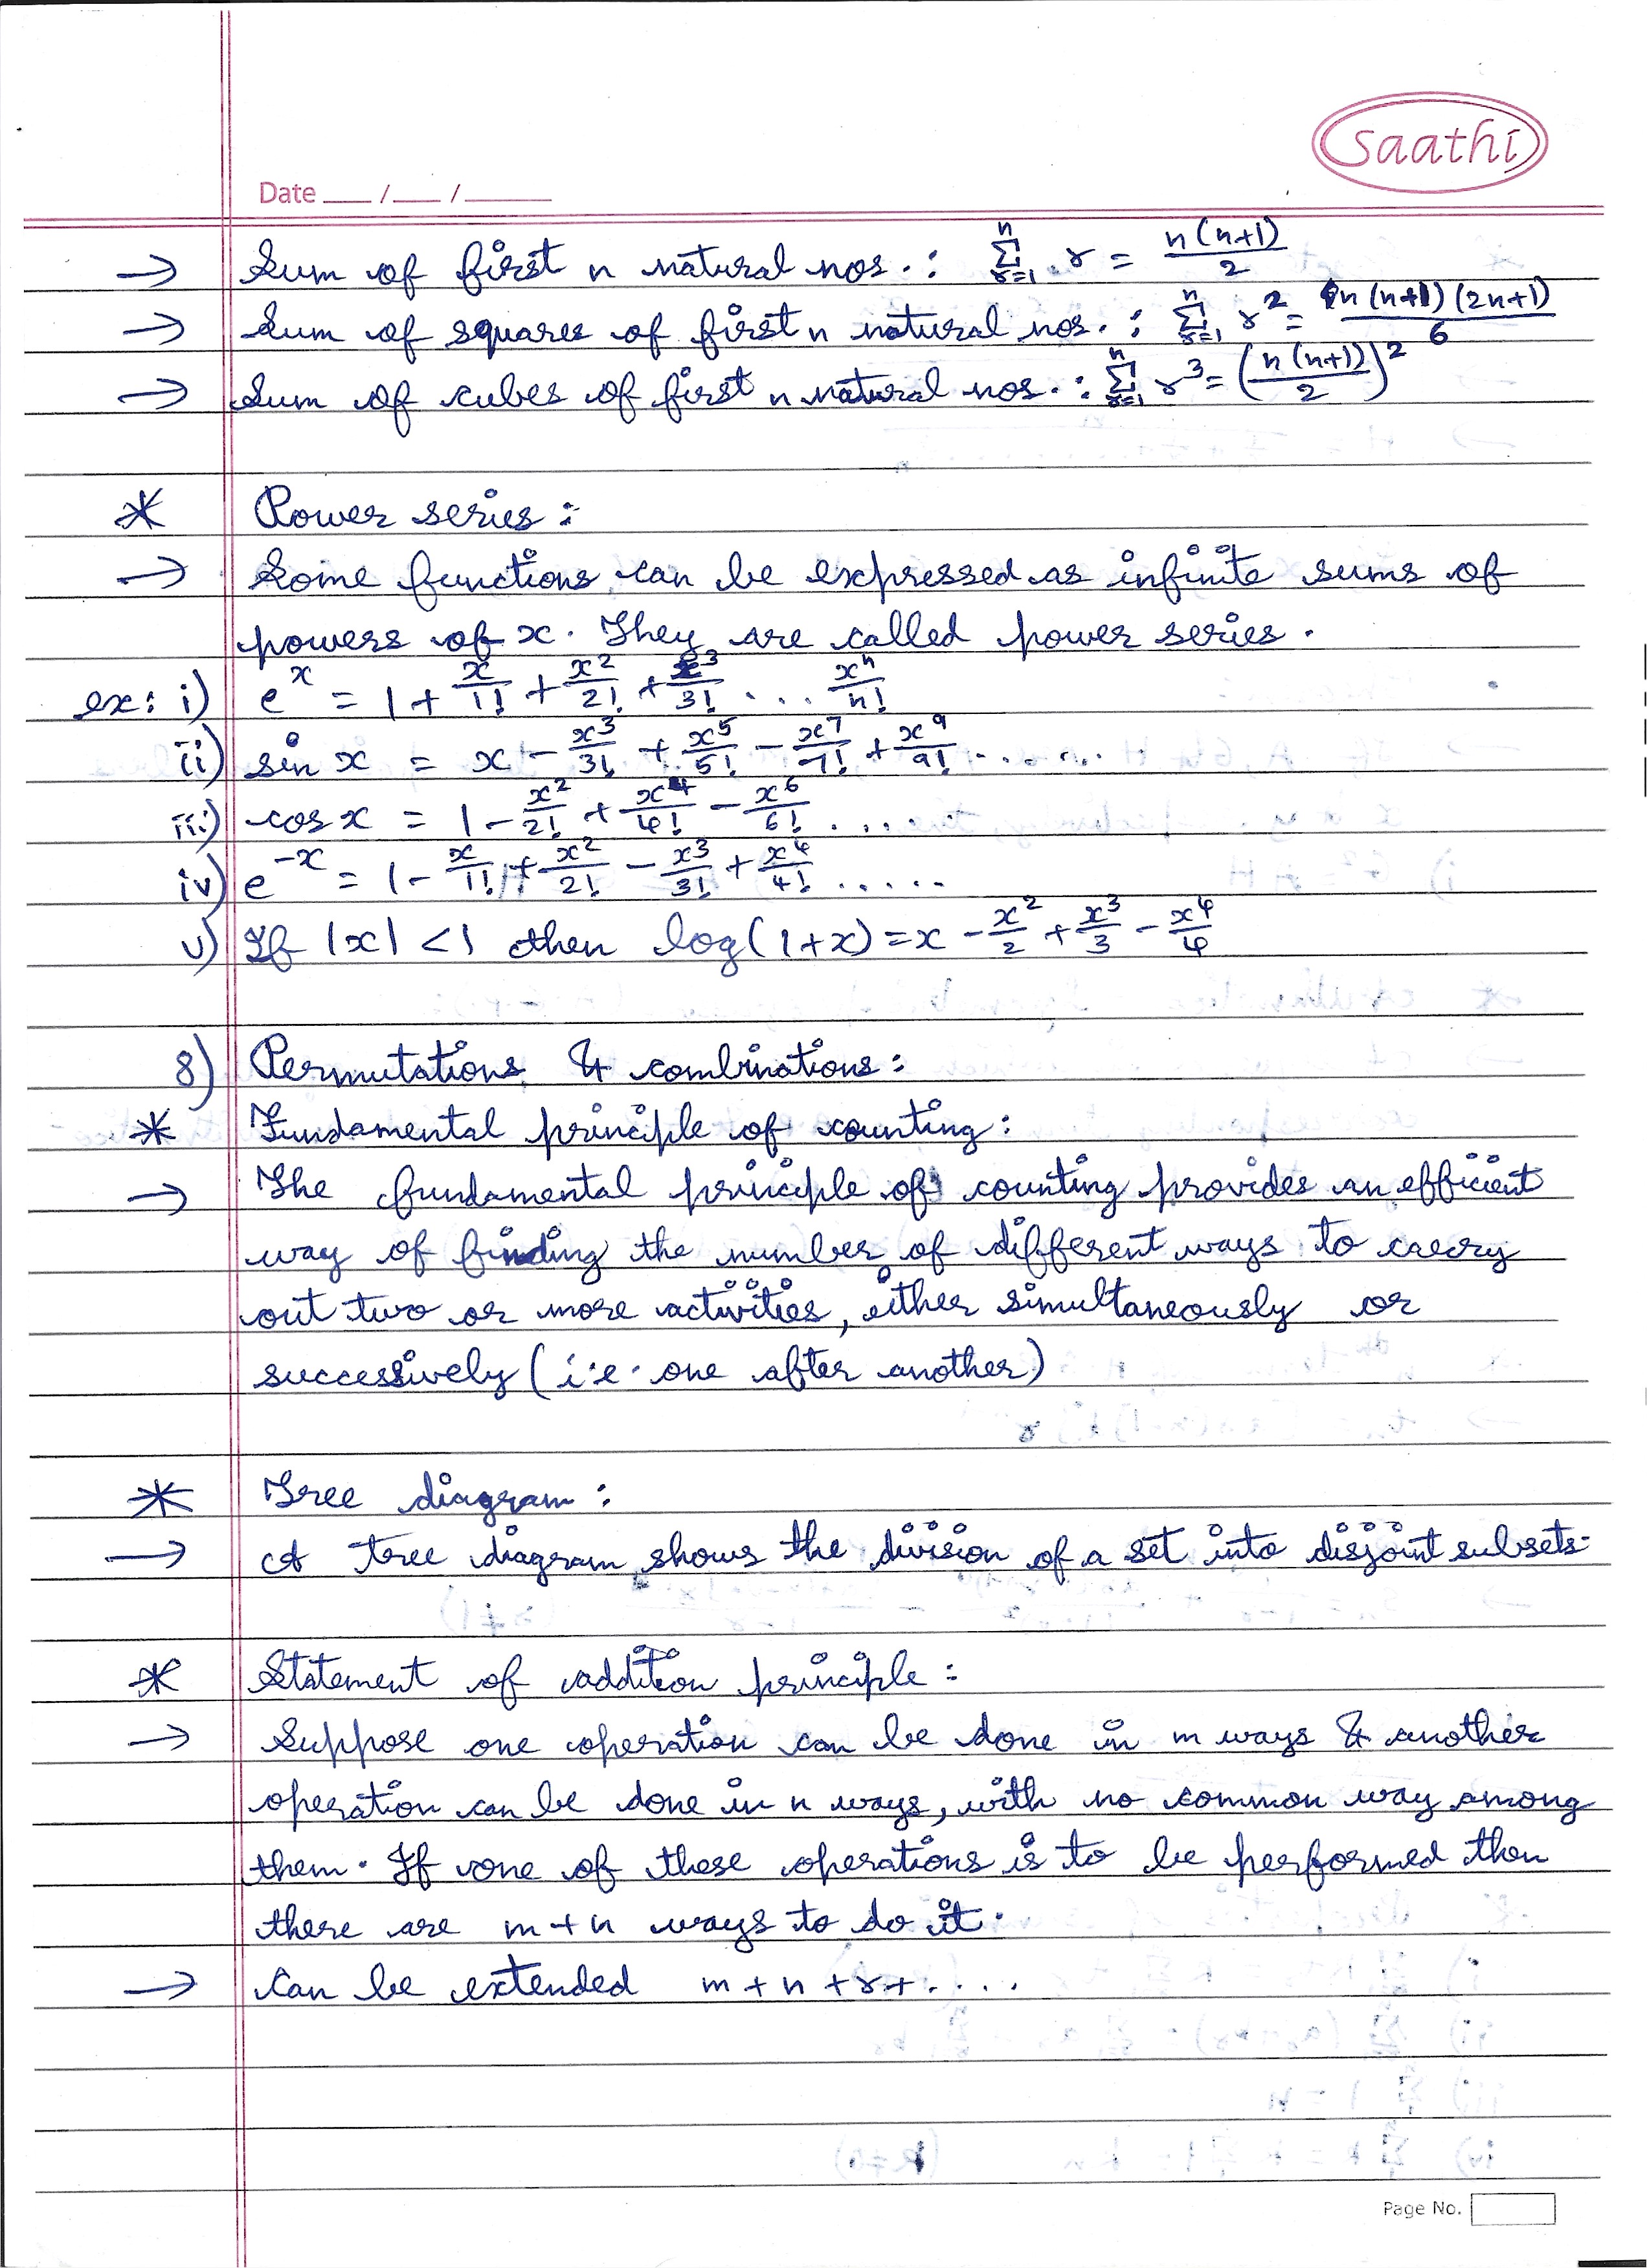 saathi
Date ___ / ___ / ______
→ Sum of first n natural nos. : n Σ r=1 r = n(n+1)/2
→ Sum of squares of first n natural nos. : n Σ r=1 r² = n(n+1)(2n+1)/6
→ Sum of cubes of first n natural nos. : n Σ r=1 r³ = (n(n+1)/2)²
* Power series :
→ Some functions can be expressed as infinite sums of
powers of x. They are called power series.
ex: i) e^x = 1 + x/1! + x²/2! + x³/3! ... x^n/n!
ii) sin x = x - x³/3! + x⁵/5! - x⁷/7! + x⁹/9! .......
iii) cos x = 1 - x²/2! + x⁴/4! - x⁶/6! .....
iv) e^-x = 1 - x/1! + x²/2! - x³/3! + x⁴/4! .....
v) If |x| < 1 then log(1+x) = x - x²/2 + x³/3 - x⁴/4
8) Permutations & combinations :
* Fundamental principle of counting :
→ The fundamental principle of counting provides an efficient
way of finding the number of different ways to carry
out two or more activities, either simultaneously or
successively (i.e. one after another)
* Tree diagram :
→ A tree diagram shows the division of a set into disjoint subsets.
* Statement of addition principle :
→ Suppose one operation can be done in m ways & another
operation can be done in n ways, with no common way among
them. If one of these operations is to be performed then
there are m+n ways to do it.
→ Can be extended m + n + r + ....
Page No.